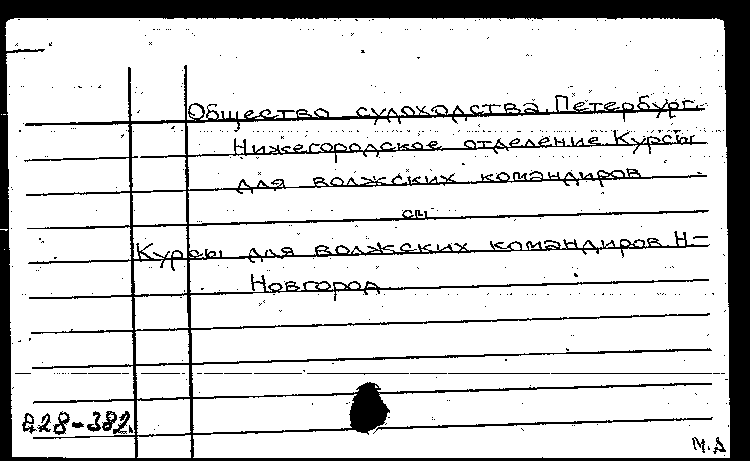 Общество судоходства. Петербург.
Нижегородское отделение. Курсы
для волжских командиров
см.
Курсы для волжских командиров. Н-
Новгород
928-382.
М.Д